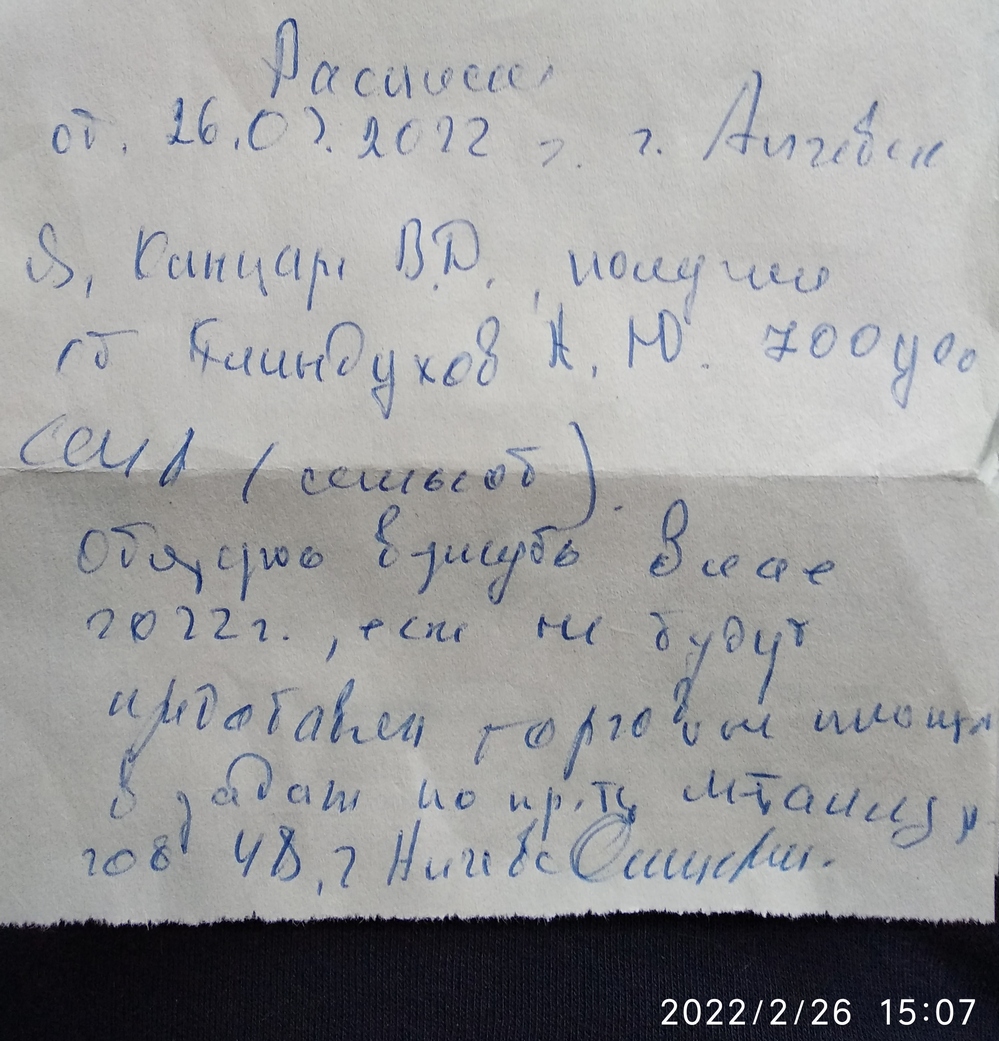 Расписка
от. 26.02.2022 г. г. Алчевск
Я, Канцар В.D., получил
от Клиндухов А. Ю. 700 уе
США (семьсот).
Обязуюсь вернуть в мае
2022г., если не будут
предоставлен торговые площади
в здании по пр.ту Металлур
гов 48, г Алчевск
2022/2/26 15:07